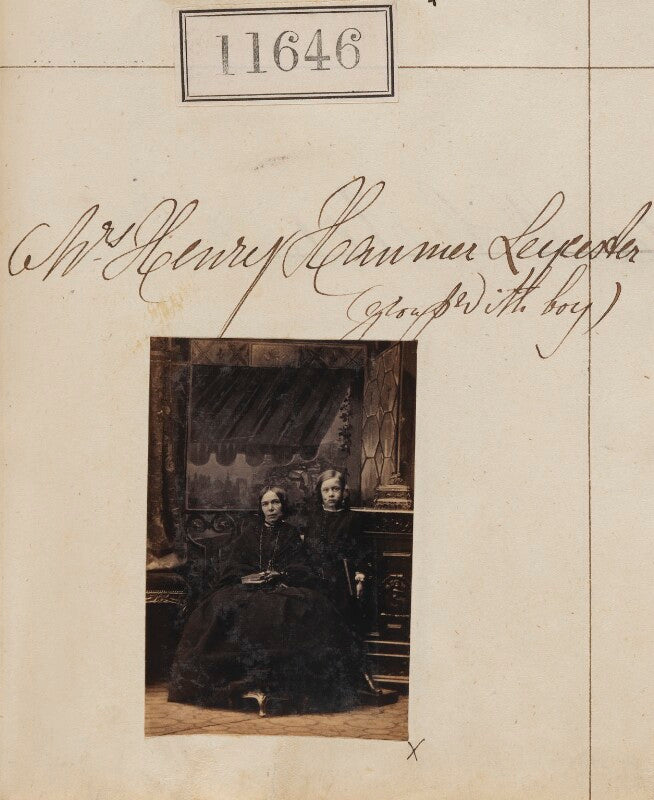 11646
Mrs Henry Hanmer Leycester
(group with boy)
X